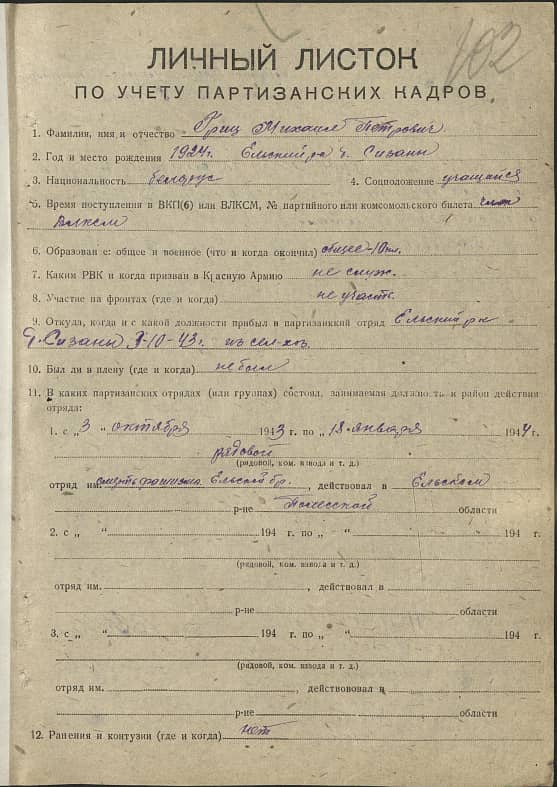 102
ЛИЧНЫЙ ЛИСТОК
ПО УЧЕТУ ПАРТИЗАНСКИХ КАДРОВ
1. Фамилия, имя и отчество Гриц Михаил Петрович
2. Год и место рождения 1924 г. Ельский р-н д. Сизаны
3. Национальность беларус 4. Соцположение учащийся
5. Время поступления в ВКП(б) или ВЛКСМ, № партийного или комсомольского билета член
ВЛКСМ
6. Образован е: общее и военное (что и когда окончил) общее-10 кл.
7. Каким РВК и когда призван в Красную Армию не служ.
8. Участие на фронтах (где и когда) не участ.
9. Откуда, когда и с какой должности прибыл в партизанкий отряд Ельский р-н
д. Сизаны 3-10-43 г. из сел-хоз.
10. Был ли в плену (где и когда) не был
11. В каких партизанских отрядах (или группах) состоял, занимаемая должность и район действия
отряда:
1. с „3 „ октября 1943 г. по „ 18 января 1944 г.
рядовой
(рядовой, ком. взвода и т. д.)
отряд им. смерть фашизма Ельской бр., действовал в Ельском
р-не Полесской области
2. с „ „ 194 г. по „ “ 194 г.
(рядовой, ком. взвода и т. д.)
отряд им. , действовал в
р-не области
3. с „ „ 194 г. по „ “ 194 г.
(рядовой, ком. взвода и т. д.)
отряд им. , действововал в
р-не области
12. Ранения и контузии (где и когда) нет